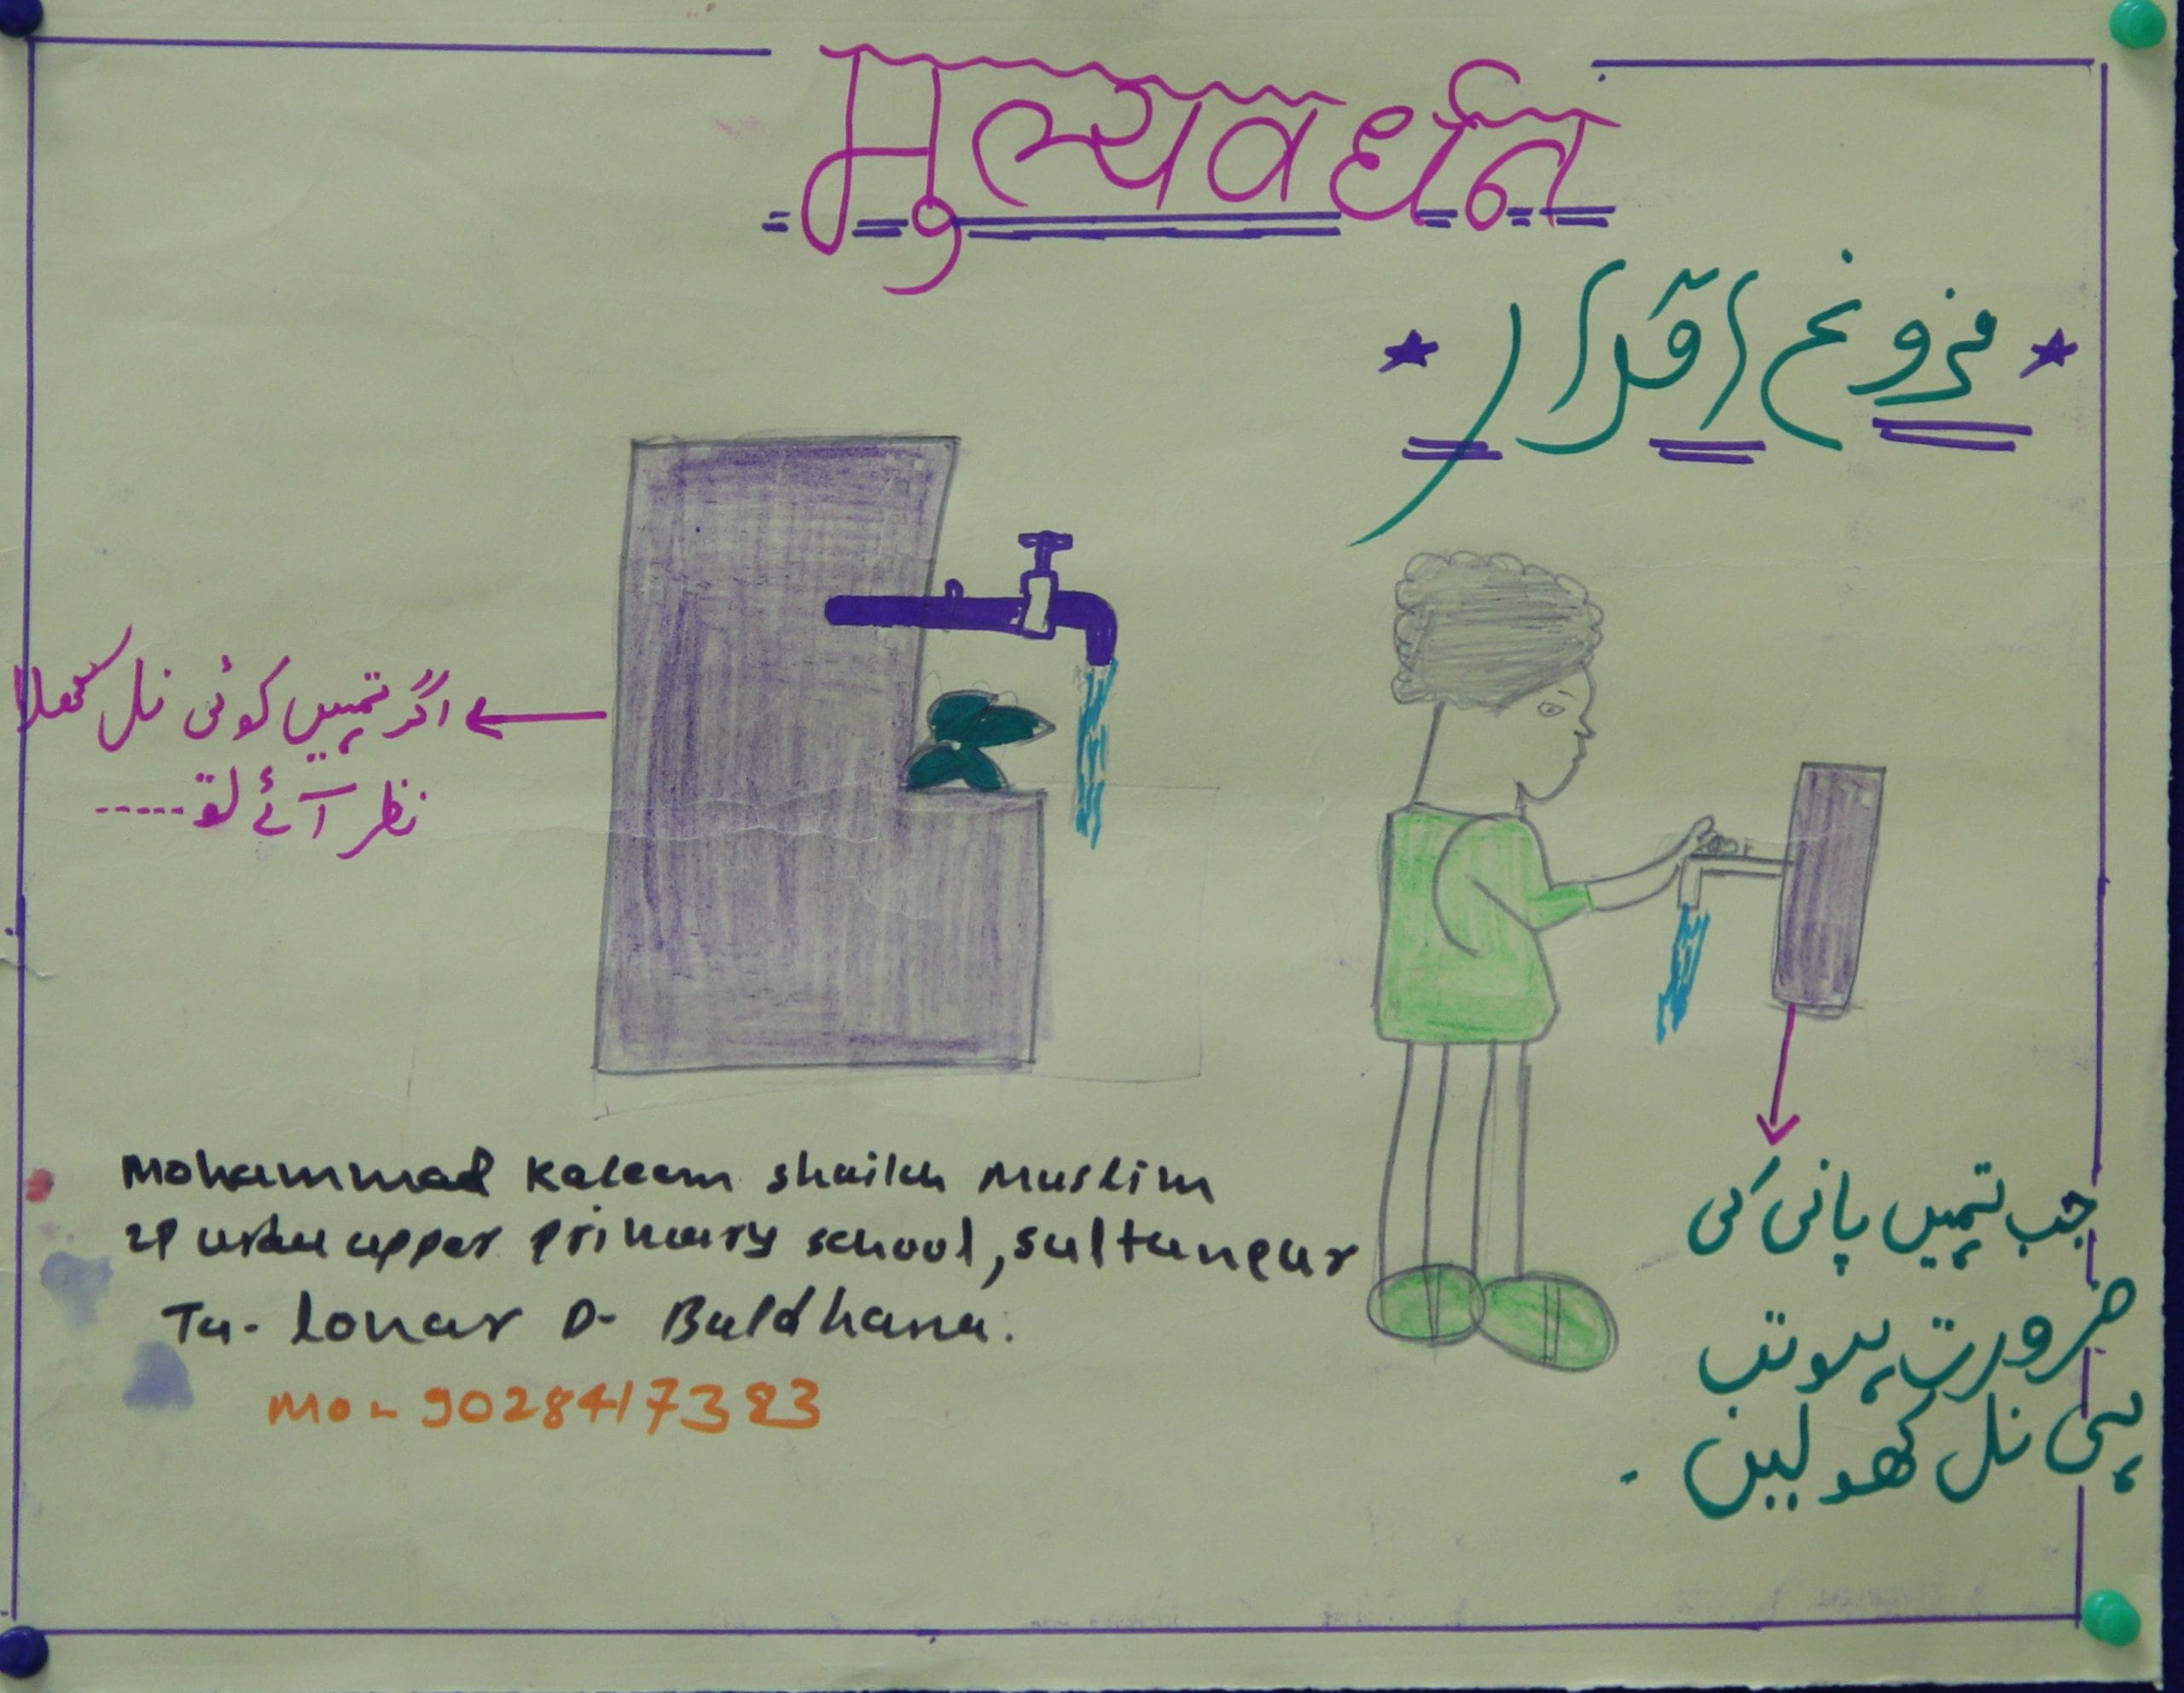 मुल्यवर्धन
فروغ اقدار
اگر تمہیں کوئی نل کھلا
نظر آئے تو-----
Mohammad Kaleem shaikh Muslim
ZP urdu upper primary school, sultanpur
Ta- lonar D- Buldhana.
Mo- 9028417383
جب تمہیں پانی کی
ضرورت ہو تب
ہی نل کھولیں۔